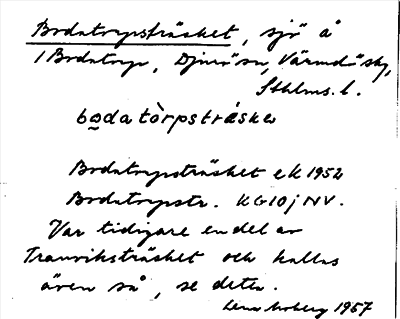 Bodatorpsträsket, sjö å
/ Bodatorp, Djurö sn, Värmdö skg,
Sthlms. l.
bodatòrpstráskeə
Bodatorpsträsket ek 1952
Bodatorpstr. KG10j NV.
Var tidigare en del av
Tranviksträsket och kallas
även så, se detta.
Lena Moberg 1967